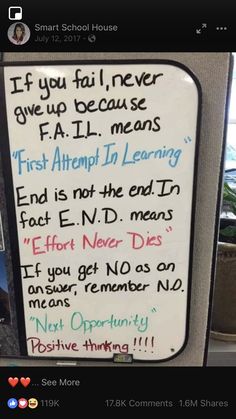 Smart School House
July 12, 2017 ·
If you fail, never
give up because
F.A.I.L. means
"First Attempt In Learning"
End is not the end. In
fact E.N.D. means
"Effort Never Dies"
If you get NO as an
answer, remember N.O.
means
"Next Opportunity"
Positive thinking!!!!
... See More
119K
17.8K Comments
1.6M Shares